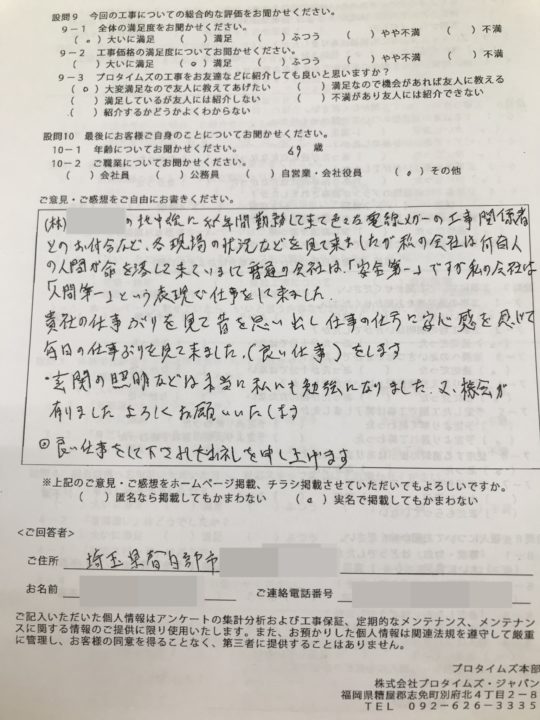 設問9 今回の工事についての総合的な評価をお聞かせください。
9-1 全体の満足度をお聞かせください。
( o )大いに満足 ( )満足 ( )ふつう ( )やや不満 ( )不満
9-2 工事価格の満足度についてお聞かせください。
( )大いに満足 ( o )満足 ( )ふつう ( )やや不満 ( )不満
9-3 プロタイムズの工事をお友達などに紹介しても良いと思いますか？
( o )大変満足なので友人に教えてあげたい ( )満足なので機会があれば友人に教える
( )満足しているが友人には紹介しない ( )不満があり友人には紹介できない
( )紹介するかどうかよくわからない
設問10 最後にお客様ご自身のことについてお聞かせください。
10-1 年齢についてお聞かせください。 69 歳
10-2 ご職業についてお聞かせください。
( )会社員 ( )公務員 ( )自営業・会社役員 ( o )その他
ご意見・ご感想をご自由にお書きください。
(株) の 年間勤務して来て色々な電線メーカーの工事関係者
とのお付合など、各現場の状況などを見て来ましたが私の会社は何百人
の人間が命を落して来ていまして普通の会社は、「安全第一」ですが私の会社は
「人間第一」という表現で仕事をして来ました.
貴社の仕事ぶりを見て昔を思い出し仕事の仕方に安心感を感じて
毎日の仕事ぶりを見て来ました.(良い仕事)をします
・玄関の照明などは本当に私にも勉強になりました.又、機会が
有りましたよろしくお願いいたします
良い仕事をして下されお礼を申し上げます
※上記のご意見・ご感想をホームページ掲載、チラシ掲載させていただいてもよろしいですか。
( )匿名なら掲載してもかまわない ( o )実名で掲載してもかまわない
<ご回答者>
ご住所 埼玉県春日部市
お名前 ご連絡電話番号
ご記入いただいた個人情報はアンケートの集計分析および工事保証、定期的なメンテナンス、メンテナン
スに関する情報のご提供に限り使用いたします。また、お預かりした個人情報は関連法規を遵守して厳重
に管理し、お客様の同意を得ることなく、第三者に提供することはありません。
プロタイムズ本部
株式会社プロタイムズ・ジャパン
福岡県糟屋郡志免町別府北4丁目2-8
TEL 092-626-3335